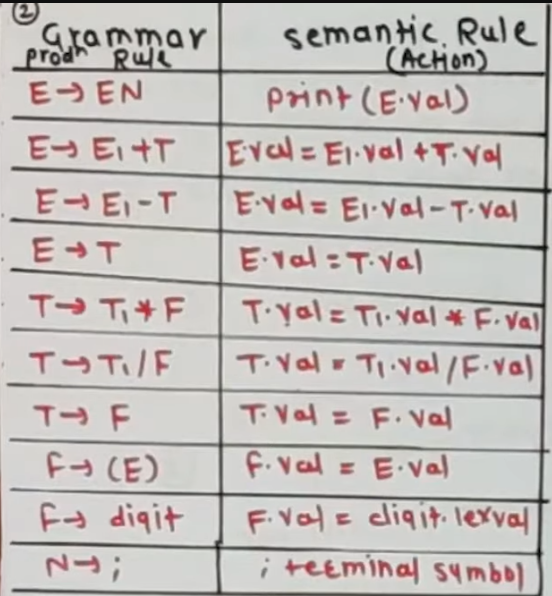 ②
Grammar prodn Rule | semantic Rule (Action)
E → EN | print (E.val)
E → E₁ + T | E.val = E₁.val + T.val
E → E₁ - T | E.val = E₁.val - T.val
E → T | E.val = T.val
T → T₁ * F | T.val = T₁.val * F.val
T → T₁ / F | T.val = T₁.val / F.val
T → F | T.val = F.val
F → (E) | F.val = E.val
F → digit | F.val = digit.lexval
N → ; | ; teeminal symbol